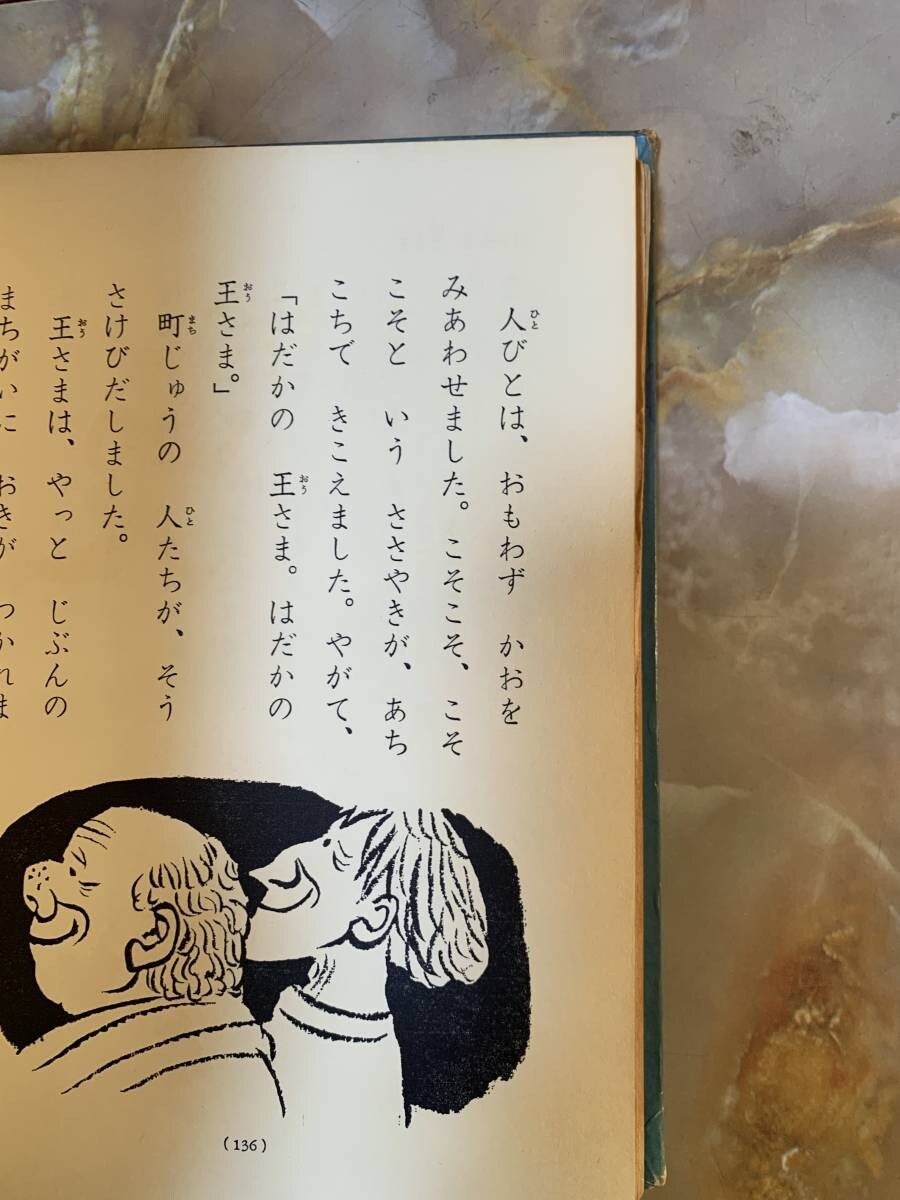 人びとは、おもわず かおを
みあわせました。こそこそ、こそ
こそと いう ささやきが、あち
こちで きこえました。やがて、
「はだかの 王さま。はだかの
王さま。」
町じゅうの 人たちが、そう
さけびだしました。
王さまは、やっと じぶんの
まちがいに おきが つかれま
(136)